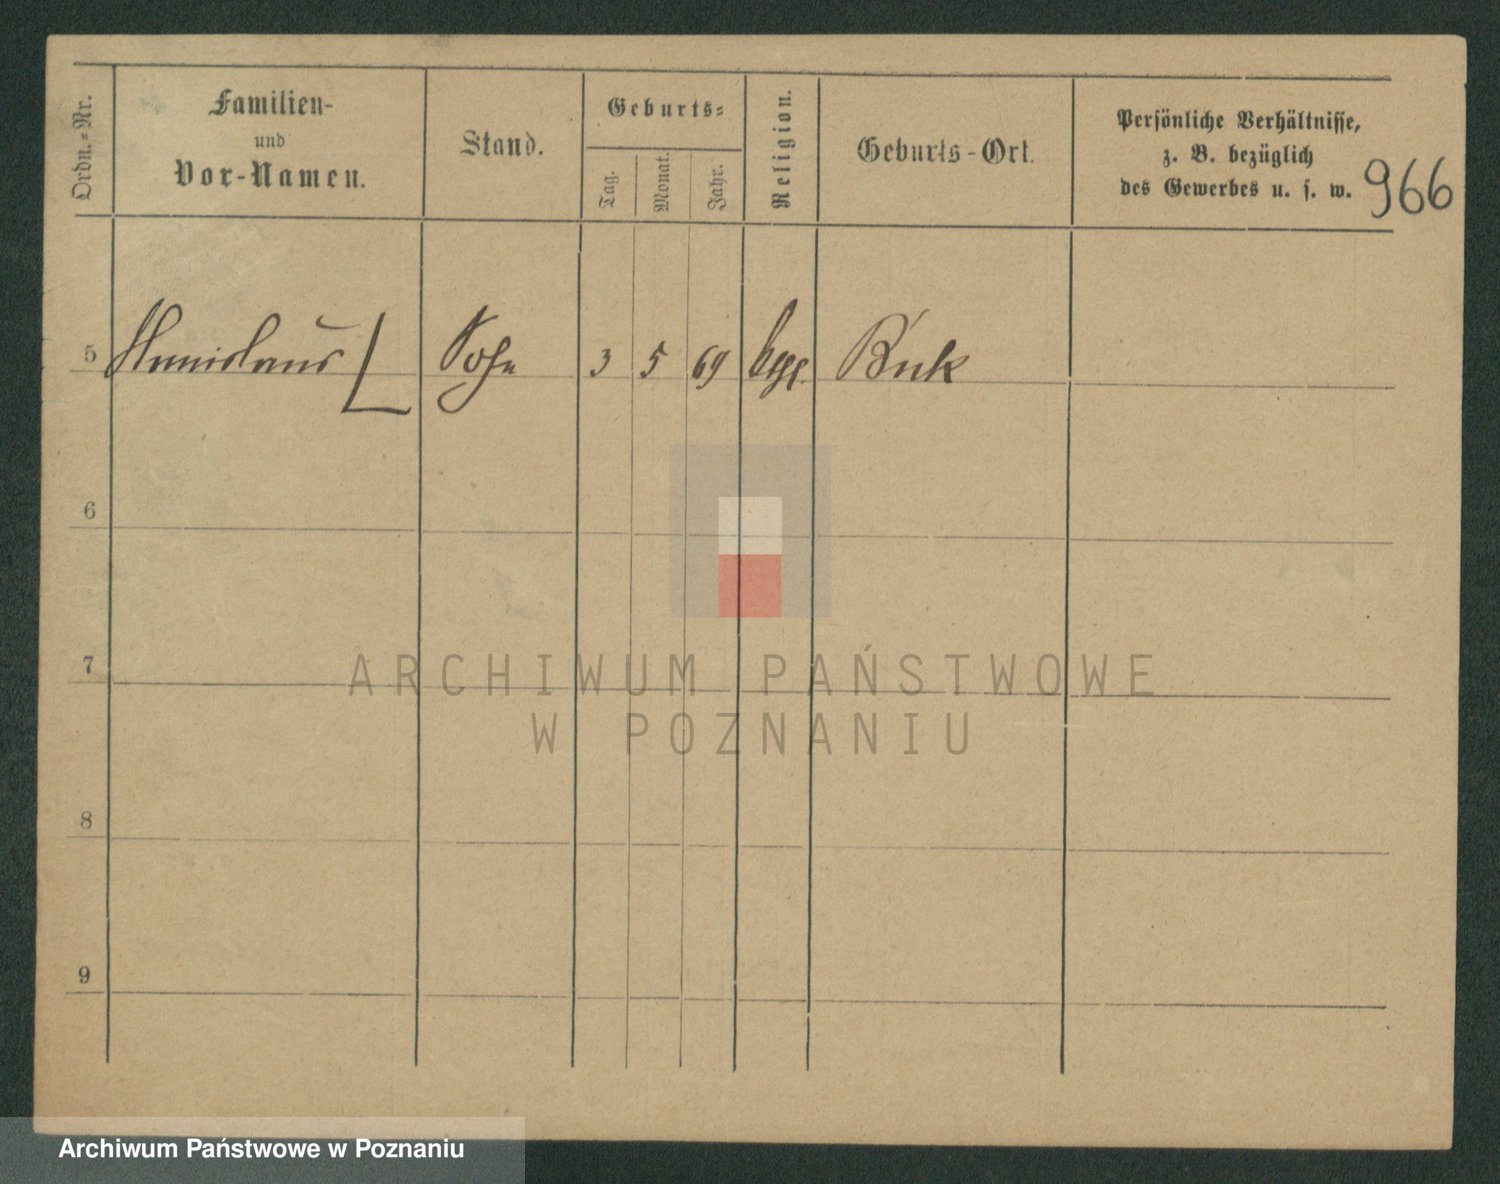 Ordn.-Nr.
Familien-
und
Vor-Namen.
Stand.
Geburts-
Tag.
Monat.
Jahr.
Religion.
Geburts-Ort.
Persönliche Verhältnisse,
z. B. bezüglich
des Gewerbes u. s. w.
966
5 Stanislaus Sohn 3 5 69 Buk
6
7
8
9
ARCHIWUM PAŃSTWOWE
W POZNANIU
Archiwum Państwowe w Poznaniu